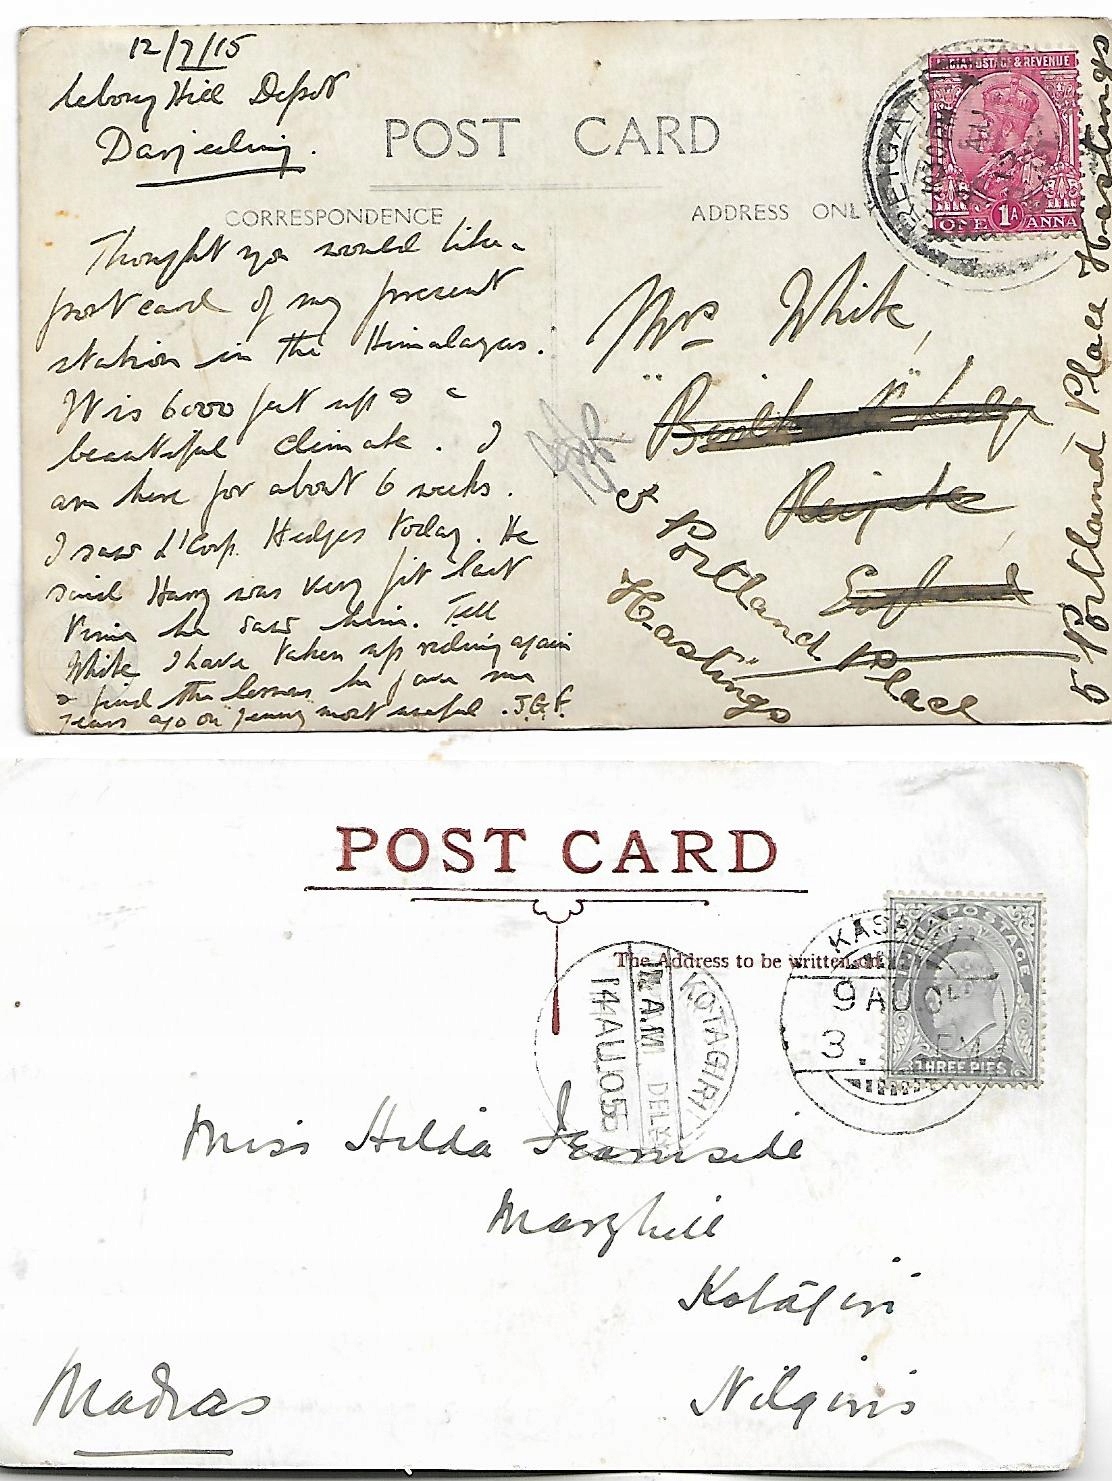 12/7/15
Lebong Hill Depot
Darjeeling.
POST CARD
CORRESPONDENCE
ADDRESS ONLY
INDIA POSTAGE & REVENUE
1A
ONE ANNA
REIGATE
Thought you would like a
post card of my present
station in the Himalayas.
It is 6000 feet up & a
beautiful climate. I
am here for about 6 weeks.
I saw L'Corp. Hedges today. He
said Harry was very fit last
time he saw him. Tell
White I have taken up riding again
& find the lessons he gave me
years ago on Jenny most useful. J.G.F.
Mrs White,
Reigate
England
5 Portland Place
Hastings
5 Portland Place Hastings
POST CARD
The Address to be written on
POSTAGE
THREE PIES
KASAULI
9 AU 0
3. PM
KOTAGIRI
7 A.M DELY
14 AU 05
Miss Hilda Ironside
Maryhill
Kotāgiri
Nilgiris
Madras